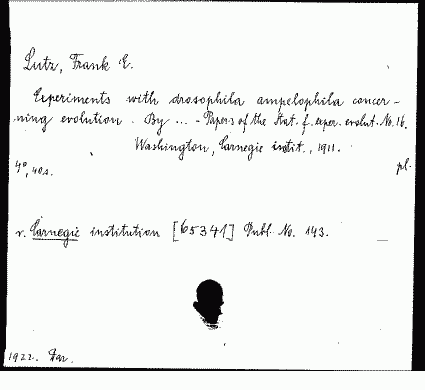 Lutz, Frank E.
Experiments with drosophila ampelophila concer-
ning evolution. By ... - Papers of the Stat. f. exper. evolut. No. 16.
Washington, Carnegie instit., 1911.
4°, 40 s. pl.
v. Carnegie institution [65341] Publ. No. 143.
1922.